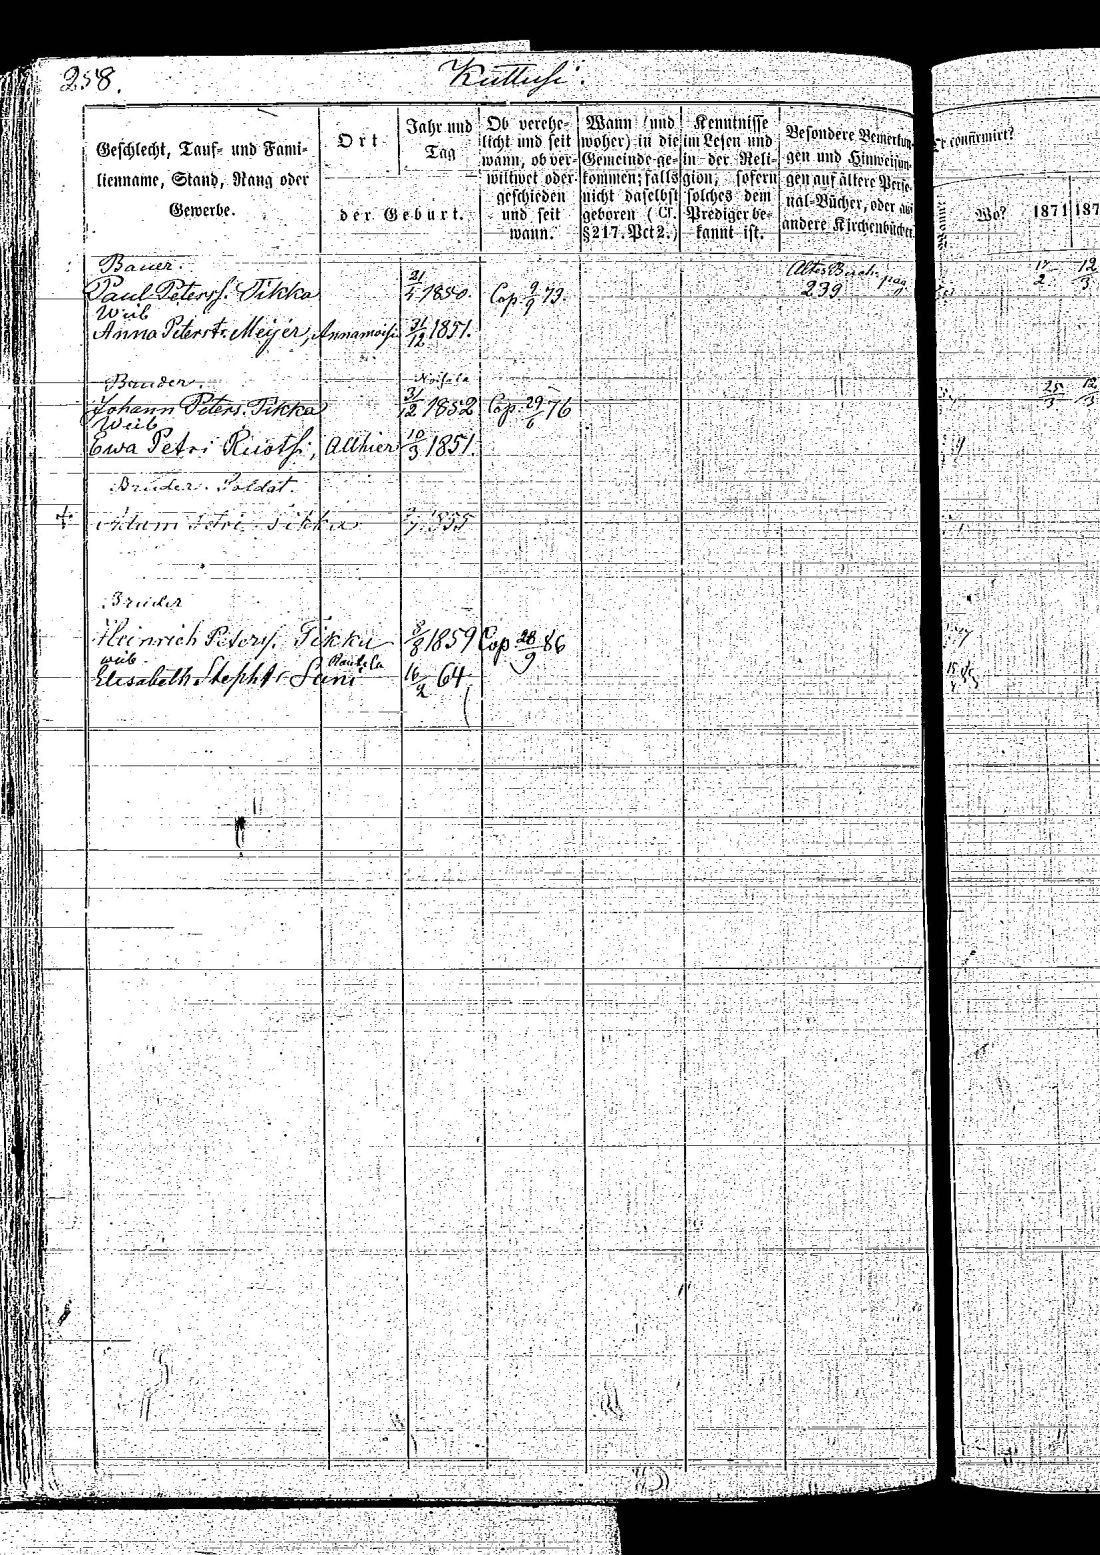 258.
Kuttusi.
Geschlecht, Tauf- und Fami-
lienname, Stand, Rang oder
Gewerbe.
Ort
Jahr und
Tag
der Geburt.
Ob verehe-
licht und seit
wann, ob ver-
wittwet oder
geschieden
und seit
wann.
Wann (und
woher) in die
Gemeinde ge-
kommen; falls
nicht daselbst
geboren (Cf.
§ 217. Pct 2.)
Kenntnisse
im Lesen und
in der Reli-
gion, sofern
solches dem
Prediger be-
kannt ist.
Besondere Bemerkun-
gen und Hinweisun-
gen auf ältere Perso-
nal-Bücher, oder auf
andere Kirchenbücher.
confirmirt?
Wo? 1871
Bauer.
Paul Peterss. Tikka 1850. Cop. 9/9 73. Altes Buch pag 239 12/3
Weib
Anna Peterst. Meijer, Annamoisi 31/12 1851.
Bruder.
Johann Peters. Tikka 31/12 1852 Cop. 29/6 76 25/3 12/3
Weib
Ewa Petri Ruotsi, Allhier 10/3 1851.
Bruder. Soldat.
+ Adam Petri Tikka 1855
Bruder
Heinrich Peterss. Tikka 8/8 1859 Cop. 28/9 86
weib
Elisabeth Steph. 16/2 64.